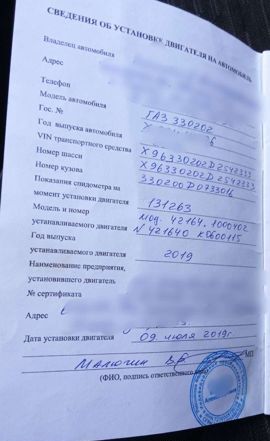 СВЕДЕНИЯ ОБ УСТАНОВКЕ ДВИГАТЕЛЯ НА АВТОМОБИЛЬ
Владелец автомобиля
Адрес
Телефон
Модель автомобиля ГАЗ 330202
Гос. №
Год выпуска автомобиля
VIN транспортного средства X96330202D2542333
Номер шасси X96330202D2542333
Номер кузова 330200D0733016
Показания спидометра на
момент установки двигателя 131263
Модель и номер мод. 42164.1000402
устанавливаемого двигателя N 421640 K0600115
Год выпуска
устанавливаемого двигателя 2019
Наименование предприятия,
установившего двигатель
№ сертификата
Адрес
Дата установки двигателя 09 июля 2019г.
Малюгин МП
(ФИО, подпись ответственного лица)